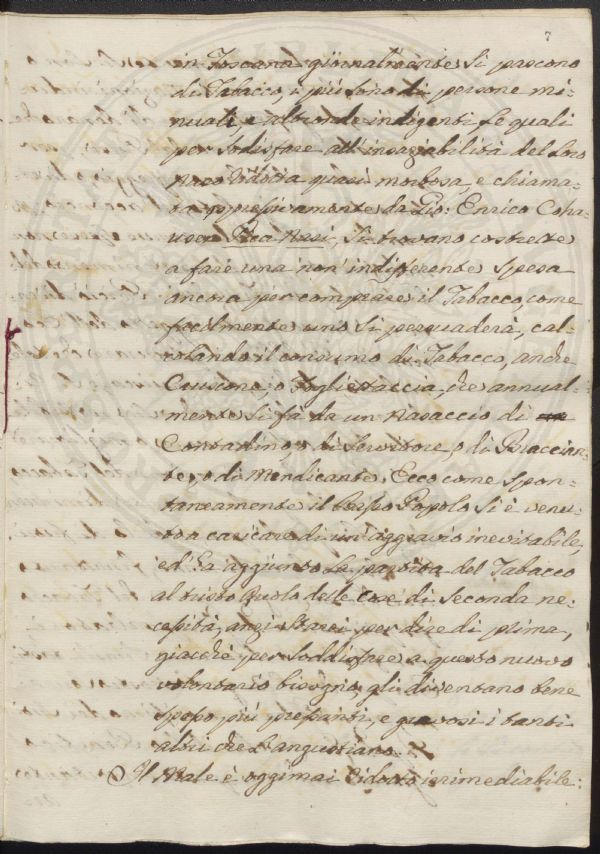 7
in Toscana giornalmente si provono
di Tabacco, i più sono di persone mi-
nuali, e altronde indigenti, le quali
per sodisfare all'insaziabilità del loro
Naso ridotta quasi morbosa, e chiama-
ta espressivamente da Gio: Enrico Coha-
usen Pica Nasi, si trovano costrette
a fare una non indifferente spesa
ancora per comprare il Tabacco, come
facilmente uno si persuaderà, cal-
colando il consumo di Tabacco, anche
Cruscone, o Fogliettaccia, che annual-
mente si fà da un Nasaccio di
Contadino, o di Servitore, o di Braccian-
te, o di Mendicante. Ecco come spon-
taneamente il basso Popolo si è venu-
to a caricare di un aggravio inevitabile,
ed ha aggiunto la partita del Tabacco
al tristo Ruolo delle Cose di seconda ne-
cessità, anzi starei per dire di prima,
giacchè per soddisfare a questo nuovo
volontario bisogno, gli diventano bene
spesso più pressanti, e gravosi i tanti
altri che l'angustiano.
Il Male è oggimai ridotto irrimediabile: